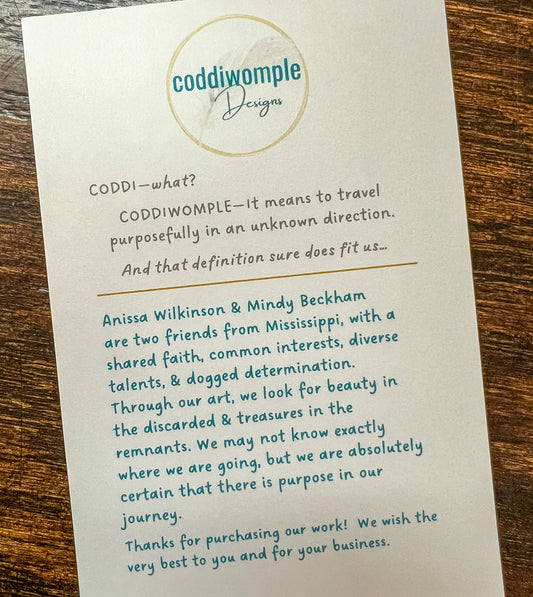 coddiwomple
Designs
CODDI—what?
CODDIWOMPLE—It means to travel
purposefully in an unknown direction.
And that definition sure does fit us...
Anissa Wilkinson & Mindy Beckham
are two friends from Mississippi, with a
shared faith, common interests, diverse
talents, & dogged determination.
Through our art, we look for beauty in
the discarded & treasures in the
remnants. We may not know exactly
where we are going, but we are absolutely
certain that there is purpose in our
journey.
Thanks for purchasing our work! We wish the
very best to you and for your business.